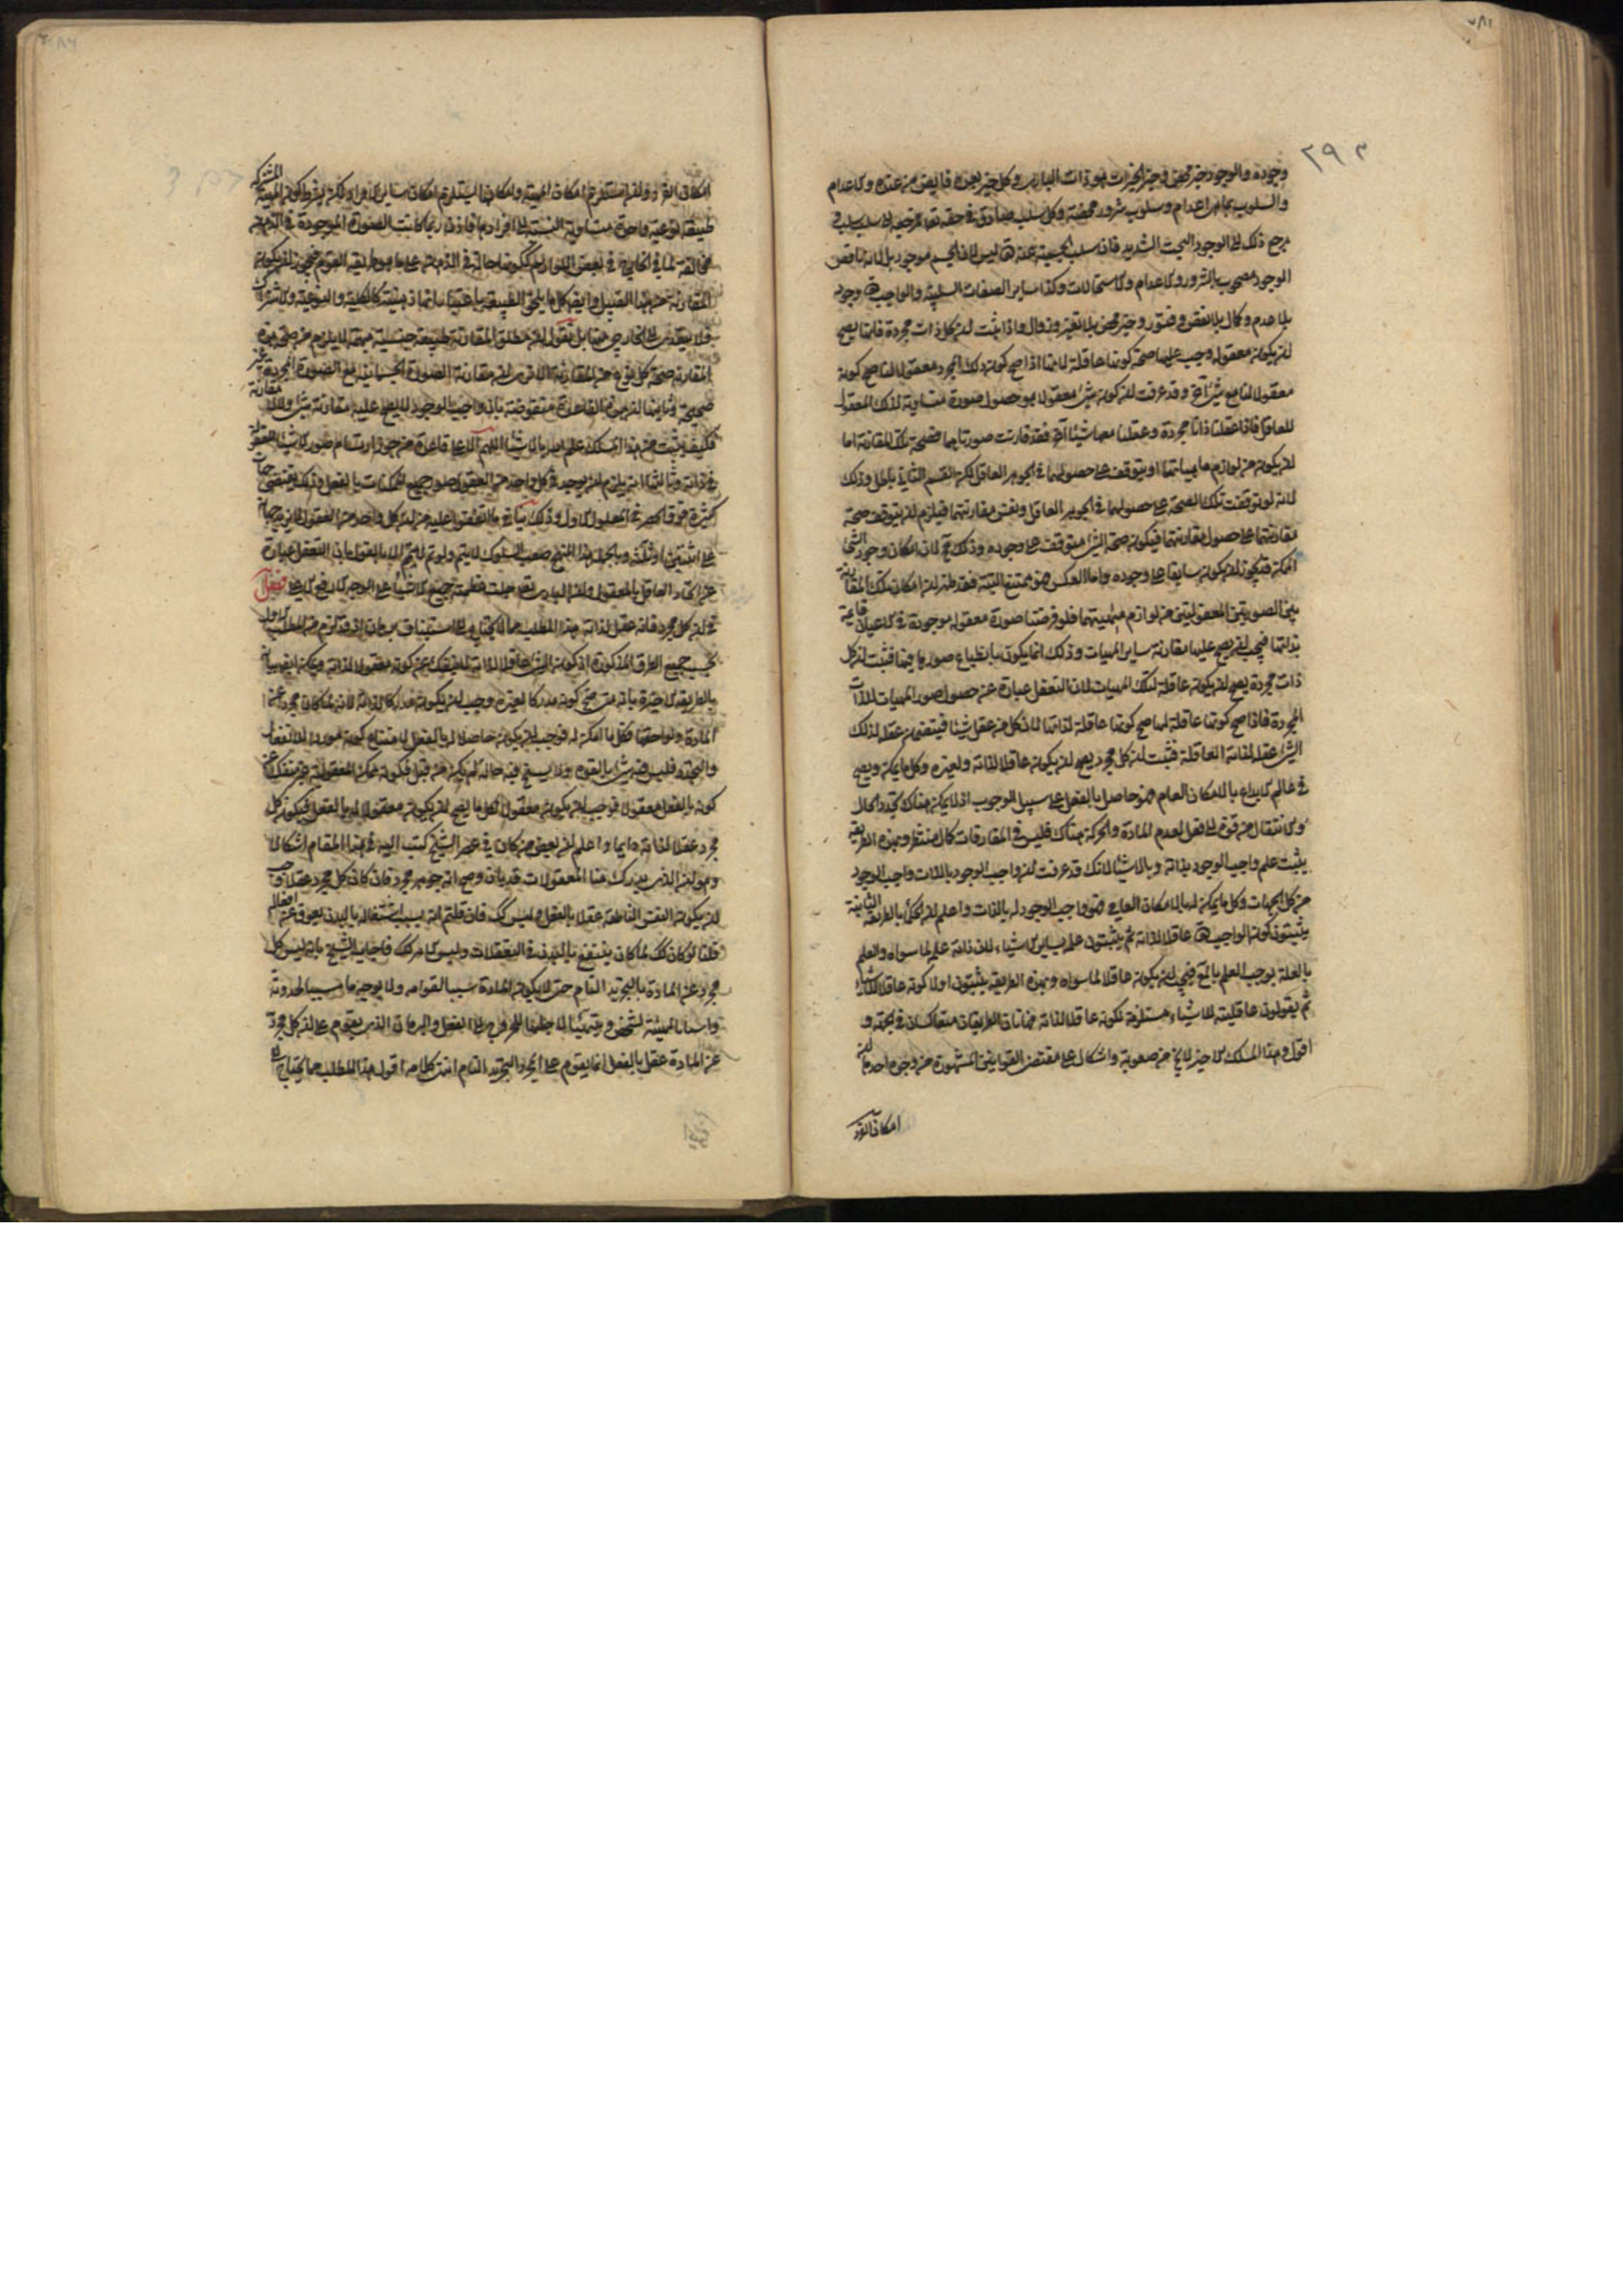 وجوده والوجود خير محض فخير الخيرات هو ذات الباري وكل خير بعده فايض من عنده والاعدام
والسلوب بما هي اعدام وسلوب شرور محضة وكل سلب صادق في حقه تعالى مرجعه الى سلب سلب
مرجع ذلك الى الوجود البحت الشديد فان سلب الجسمية عنه تع ليس لان الجسم موجود بل لانه ناقص
الوجود مصحوب بالشرور والاعدام والاستحالات وكذا ساير الصفات السلبية والواجب تع وجود
بلا عدم وكمال بلا نقص وفتور وخير محض بلا تغير وزوال واذا ثبت ان كل ذات مجردة فانما يصح
ان يكون معقولة وجب عليها صحة كونها عاقلة لانها اذا صح كون ذلك المجرد معقولا لنا صح كونه
معقولا لنا مع شئ آخر وقد عرفت ان كون شئ معقولا هو حصول صورة متساوية لذلك المعقول
للعاقل فاذا عقلنا ذاتا مجردة وعقلنا معها شيئا آخر فقد قارنت صورتاهما فصحة تلك المقارنة اما
ان يكون من لوازم ماهياتهما او يتوقف على حصولهما في الجوهر العاقل لكن القسم الثاني باطل وذلك
لانه لو توقفت تلك الصحة على حصولهما في الجوهر العاقل ونفس مقارنتهما فيلزم ان يتوقف صحة
مقارنتهما على حصول مقارنتهما فيكون صحة الشئ متوقفة على وجوده وذلك مح لان امكان وجود الشئ
الممكن يكون سابقا على وجوده واما العكس فهو ممتنع البتة فقد ظهر ان امكان تلك المقارنة
بين الصورتين المعقولتين من لوازم مهيتهما فلو فرضنا صورة معقولة موجودة في الاعيان قائمة
بذاتها فيجب ان يصح عليها مقارنة ساير المهيات وذلك انما يكون بانطباع صورها فيها فثبت ان كل
ذات مجردة يصح ان يكون عاقلة لتلك المهيات لان التعقل عبارة عن حصول صور المهيات للذات
المجردة فاذا صح كونها عاقلة لها صح كونها عاقلة لذاتها لان كل من عقل شيئا فيتضمن عقله لذلك
الشئ عقله لذاته العاقلة فثبت ان كل مجرد يصح ان يكون عاقلا لذاته ولغيره وكل ما يمكن ويصح
في عالم الابداع بالامكان العام فهو حاصل بالفعل على سبيل الوجوب اذ لا يمكن هناك تجدد الحال
والانتقال من قوة الى فعل لعدم المادة والحركة هناك فليس في المفارقات كمال منتظر وبهذه الطريقة
يثبت علم واجب الوجود بذاته وبالاشياء لانك قد عرفت ان واجب الوجود بالذات واجب الوجود
من كل الجهات وكل ما يمكن له بالامكان العام فهو واجب الوجود له بالذات واعلم ان الحكماء بالطريقة الثانية
يثبتون كون الواجب تع عاقلا لذاته ثم يثبتون علمه بساير الاشياء لان ذاته علة لما سواه والعلم
بالعلة يوجب العلم بالمعلول فيجب ان يكون عاقلا لما سواه وبهذه الطريقة يثبتون اولا كونه عاقلا للاشياء
ثم يقولون عاقليته للاشياء مستلزمة لكونه عاقلا لذاته فهاتان الطريقتان متعاكستان في الجهة و
اقول وهذا المسلك الاخير لا يخ من صعوبة واشكال على مقتضى القوانين المشهورة من وجوه احدها ان
امكان الفرد
امكان الفرد وان استلزم امكان المهية وامكانها يستلزم امكان ساير الافراد لكن بشرط كون المهية المشتركة
طبيعة نوعية واحدة متساوية النسبة الى افرادها فاذن ربما كانت الصورة الموجودة في الذهن
مخالفة لما في الخارج في بعض اللوازم ككونها حالة في الذهن على ما هو طريقة القوم فيجوز ان يكون
المقارنة من هذا القبيل وايضا كل ما يلحق الطبيعة باعتبار انها ذهنية كالكلية والنوعية والاشتراك
فلا يتعدى الى الخارج ومثله نقول ان مطلق المقارنة طبيعة جنسية مبهمة لا يلزم من صحة هذه
المقارنة صحة كل نوع من المقارنة الا ترى ان مقارنة الصورة الجسمانية مع الصورة المجردة غير
صحيحة وثانيها ان هذه القاعدة منقوضة بان واجب الوجود لا يصح عليه مقارنة شئ والا
فكيف يثبت من هذا المسلك علم الباري بالاشياء اللهم الا على قاعدة من جوز ارتسام صور الاشياء المعقولة
في ذاته وثالثها انه يلزم ان يوجد في كل واحد من العقول صور جميع الممكنات بالفعل وذلك يقتضي جهات
كثيرة فوق الحصر في المعلول الاول وذلك ينافي ما اتفقوا عليه من ان كل واحد من العقول لا يزيد جهاته
على اثنتين او ثلثة وبالجملة هذا المنهج صعب السلوك لا يتم ولو تم لا يتم الا بالقول بان التعقل عبارة
عن اتحاد العاقل بالمعقول وان الباري تع حيث عظمته جميع الاشياء على الوجه الارفع الاعلى فصل
في ان كل مجرد فانه عقل لذاته هذا المطلب مما لا يحتاج الى استيناف برهان اذ قد لزم من المطلب الاول
بحسب جميع الطرق المذكورة اذ كون الشئ عاقلا لذاته لا ينفك عن كونه معقولا لذاته ويمكن ايضا بيانه
بالطريقة الاخيرة بانه متى صح كونه مدركا لغيره وجب ان يكون مدركا لذاته لانه لما كان مجردا عن
المادة ولواحقها فكل ما امكن له فوجب ان يكون حاصلا له بالفعل لامتناع كونه موردا للانفعال
والتجدد فليس فيه شئ بالقوة ولا يسنح فيه حالة لم يكن من قبل فيكون ممكن المعقولية غير منفك عن
كونه بالفعل معقولا فوجب ان يكون معقولا لكل ما يصح ان يكون معقولا له بالفعل فيكون كل
مجرد عقلا لذاته دايما واعلم ان بعض من كان في عصر الشيخ كتب اليه في هذا المقام اشكالا
وهو ان الذي يدرك منا المعقولات قد بان وصح انه جوهر مجرد فان كان كل مجرد عقلا وجب
ان يكون النفس الناطقة عقلا بالفعل وليس كك فان قلتم انه بسبب اشتغاله بالبدن يعوق عن افعاله
قلنا لو كان كك لما كان ينتفع بالبدن في التعقلات وليس الامر كك فاجاب الشيخ بانه ليس كل
مجرد عن المادة بالتجريد التام حتى لا يكون المادة سببا لقوامه ولا بوجه ما سببا لحدوثه
ولا سببا لهيئة تشخص وتتهيأ لاجلها للخروج الى الفعل والبرهان الذي يقوم على ان كل مجرد
عن المادة عقل بالفعل انما يقوم على المجرد التجريد التام انتهى كلامه اقول هذا المطلب مما يحتاج الى